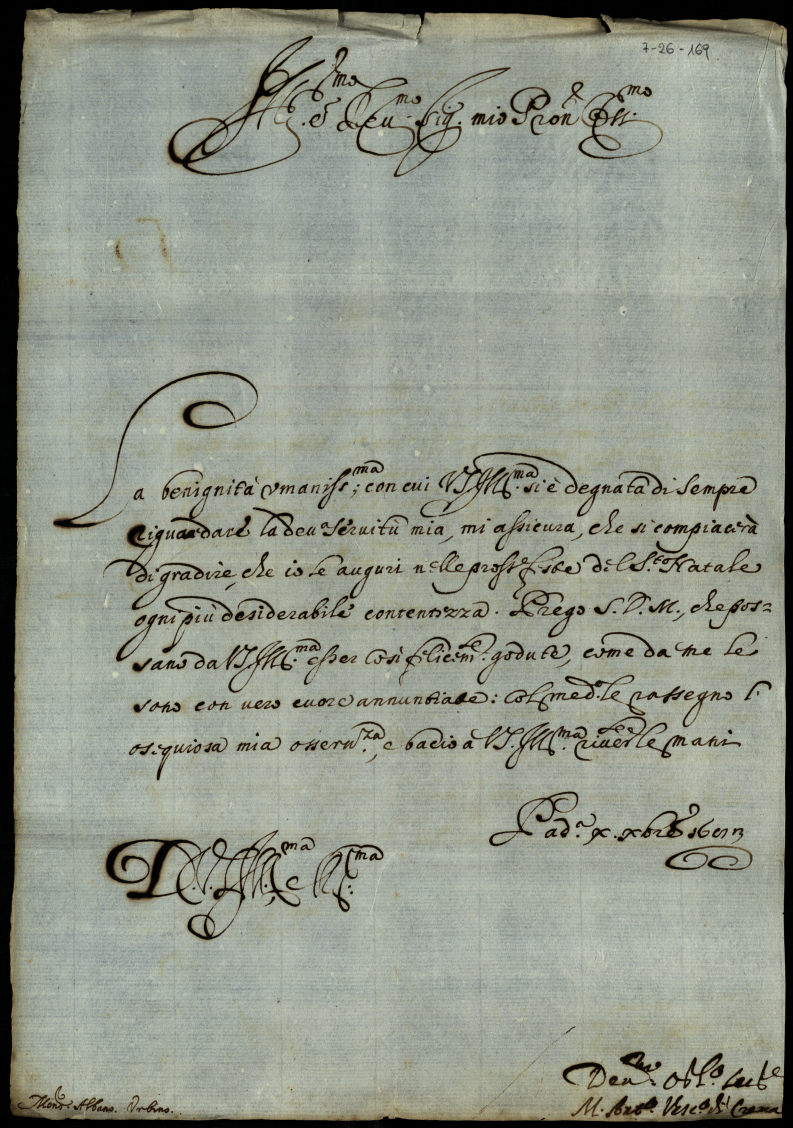 7-26-169
Ill.mo e Rev.mo Sig. mio Pron.e Oss.mo
La benignità umaniss.ma; con cui V.S. Ill.ma si è degnata di sempre
riguardare la dev.a servitù mia, mi assicura, che si compiacerà
di gradire, che io le auguri nelle pross.e feste del S.to Natale
ogni più desiderabile contentezza. Prego S. D. M., che pos=
sano da V.S. Ill.ma esser così felicem.te godute, come da me le
sono con vero cuore annuntiate: Col med.o le rassegno l'
osequiosa mia osserv.za, e bacio à V.S. Ill.ma river.te le mani
Pad.a X. Xbre
D. V. S. Ill.ma e R.ma
Dev.mo Obl.o Ser.e
M. Ant.o Vesc.o di Crema
Mons.r Albano. Urbino.